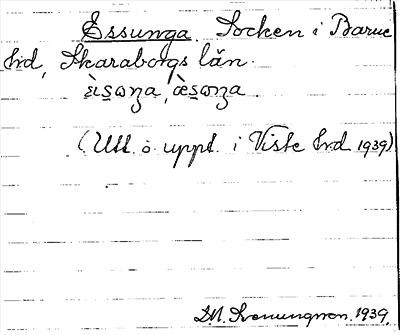 Essunga. Socken i Barne
hrd, Skaraborgs län.
(Utt. o. uppt. i Viste hrd 1939)
1939.